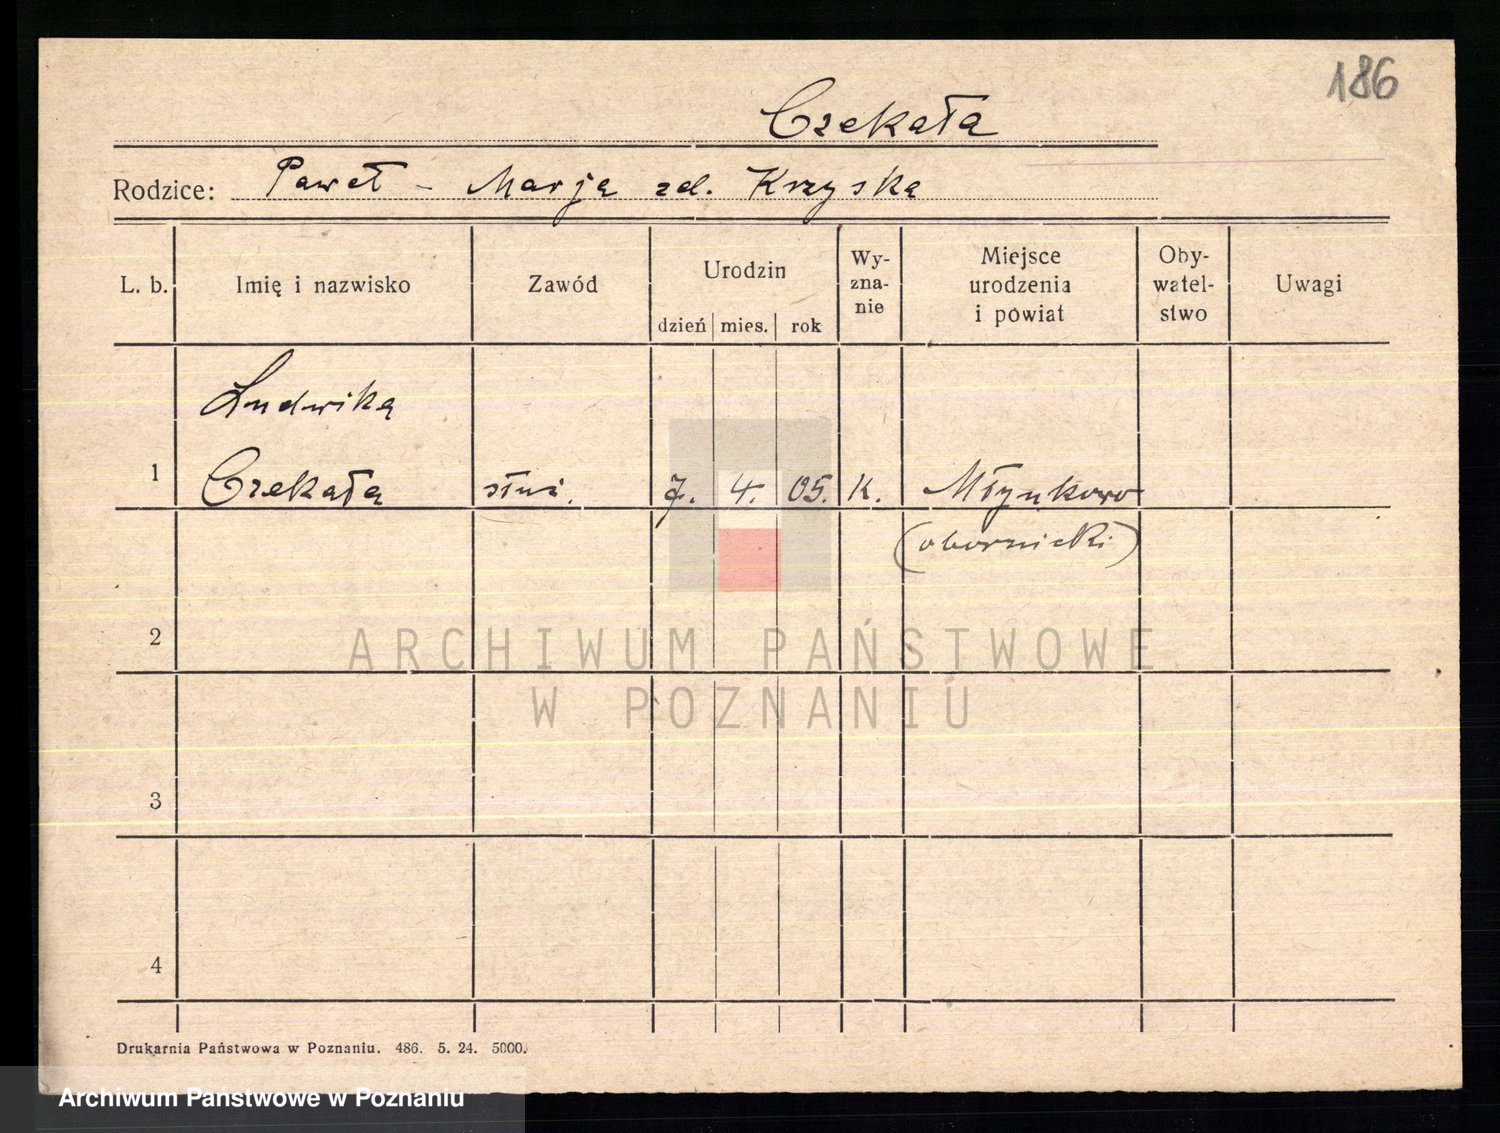 186
Czekała
Rodzice: Paweł - Marja zd. Krzyska
L. b. Imię i nazwisko Zawód Urodzin dzień mies. rok Wy-zna-nie Miejsce urodzenia i powiat Oby-watel-stwo Uwagi
Ludwika
1 Czekała służ. 7. 4. 05. K. Młynkowo
(obornicki)
2
ARCHIWUM PAŃSTWOWE
W POZNANIU
3
4
Drukarnia Państwowa w Poznaniu. 486. 5. 24. 5000.
Archiwum Państwowe w Poznaniu